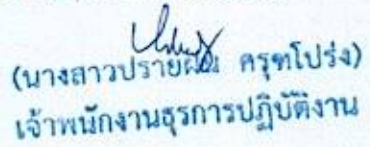 (นางสาวปรายฝน ครุฑโปร่ง)
เจ้าพนักงานธุรการปฏิบัติงาน